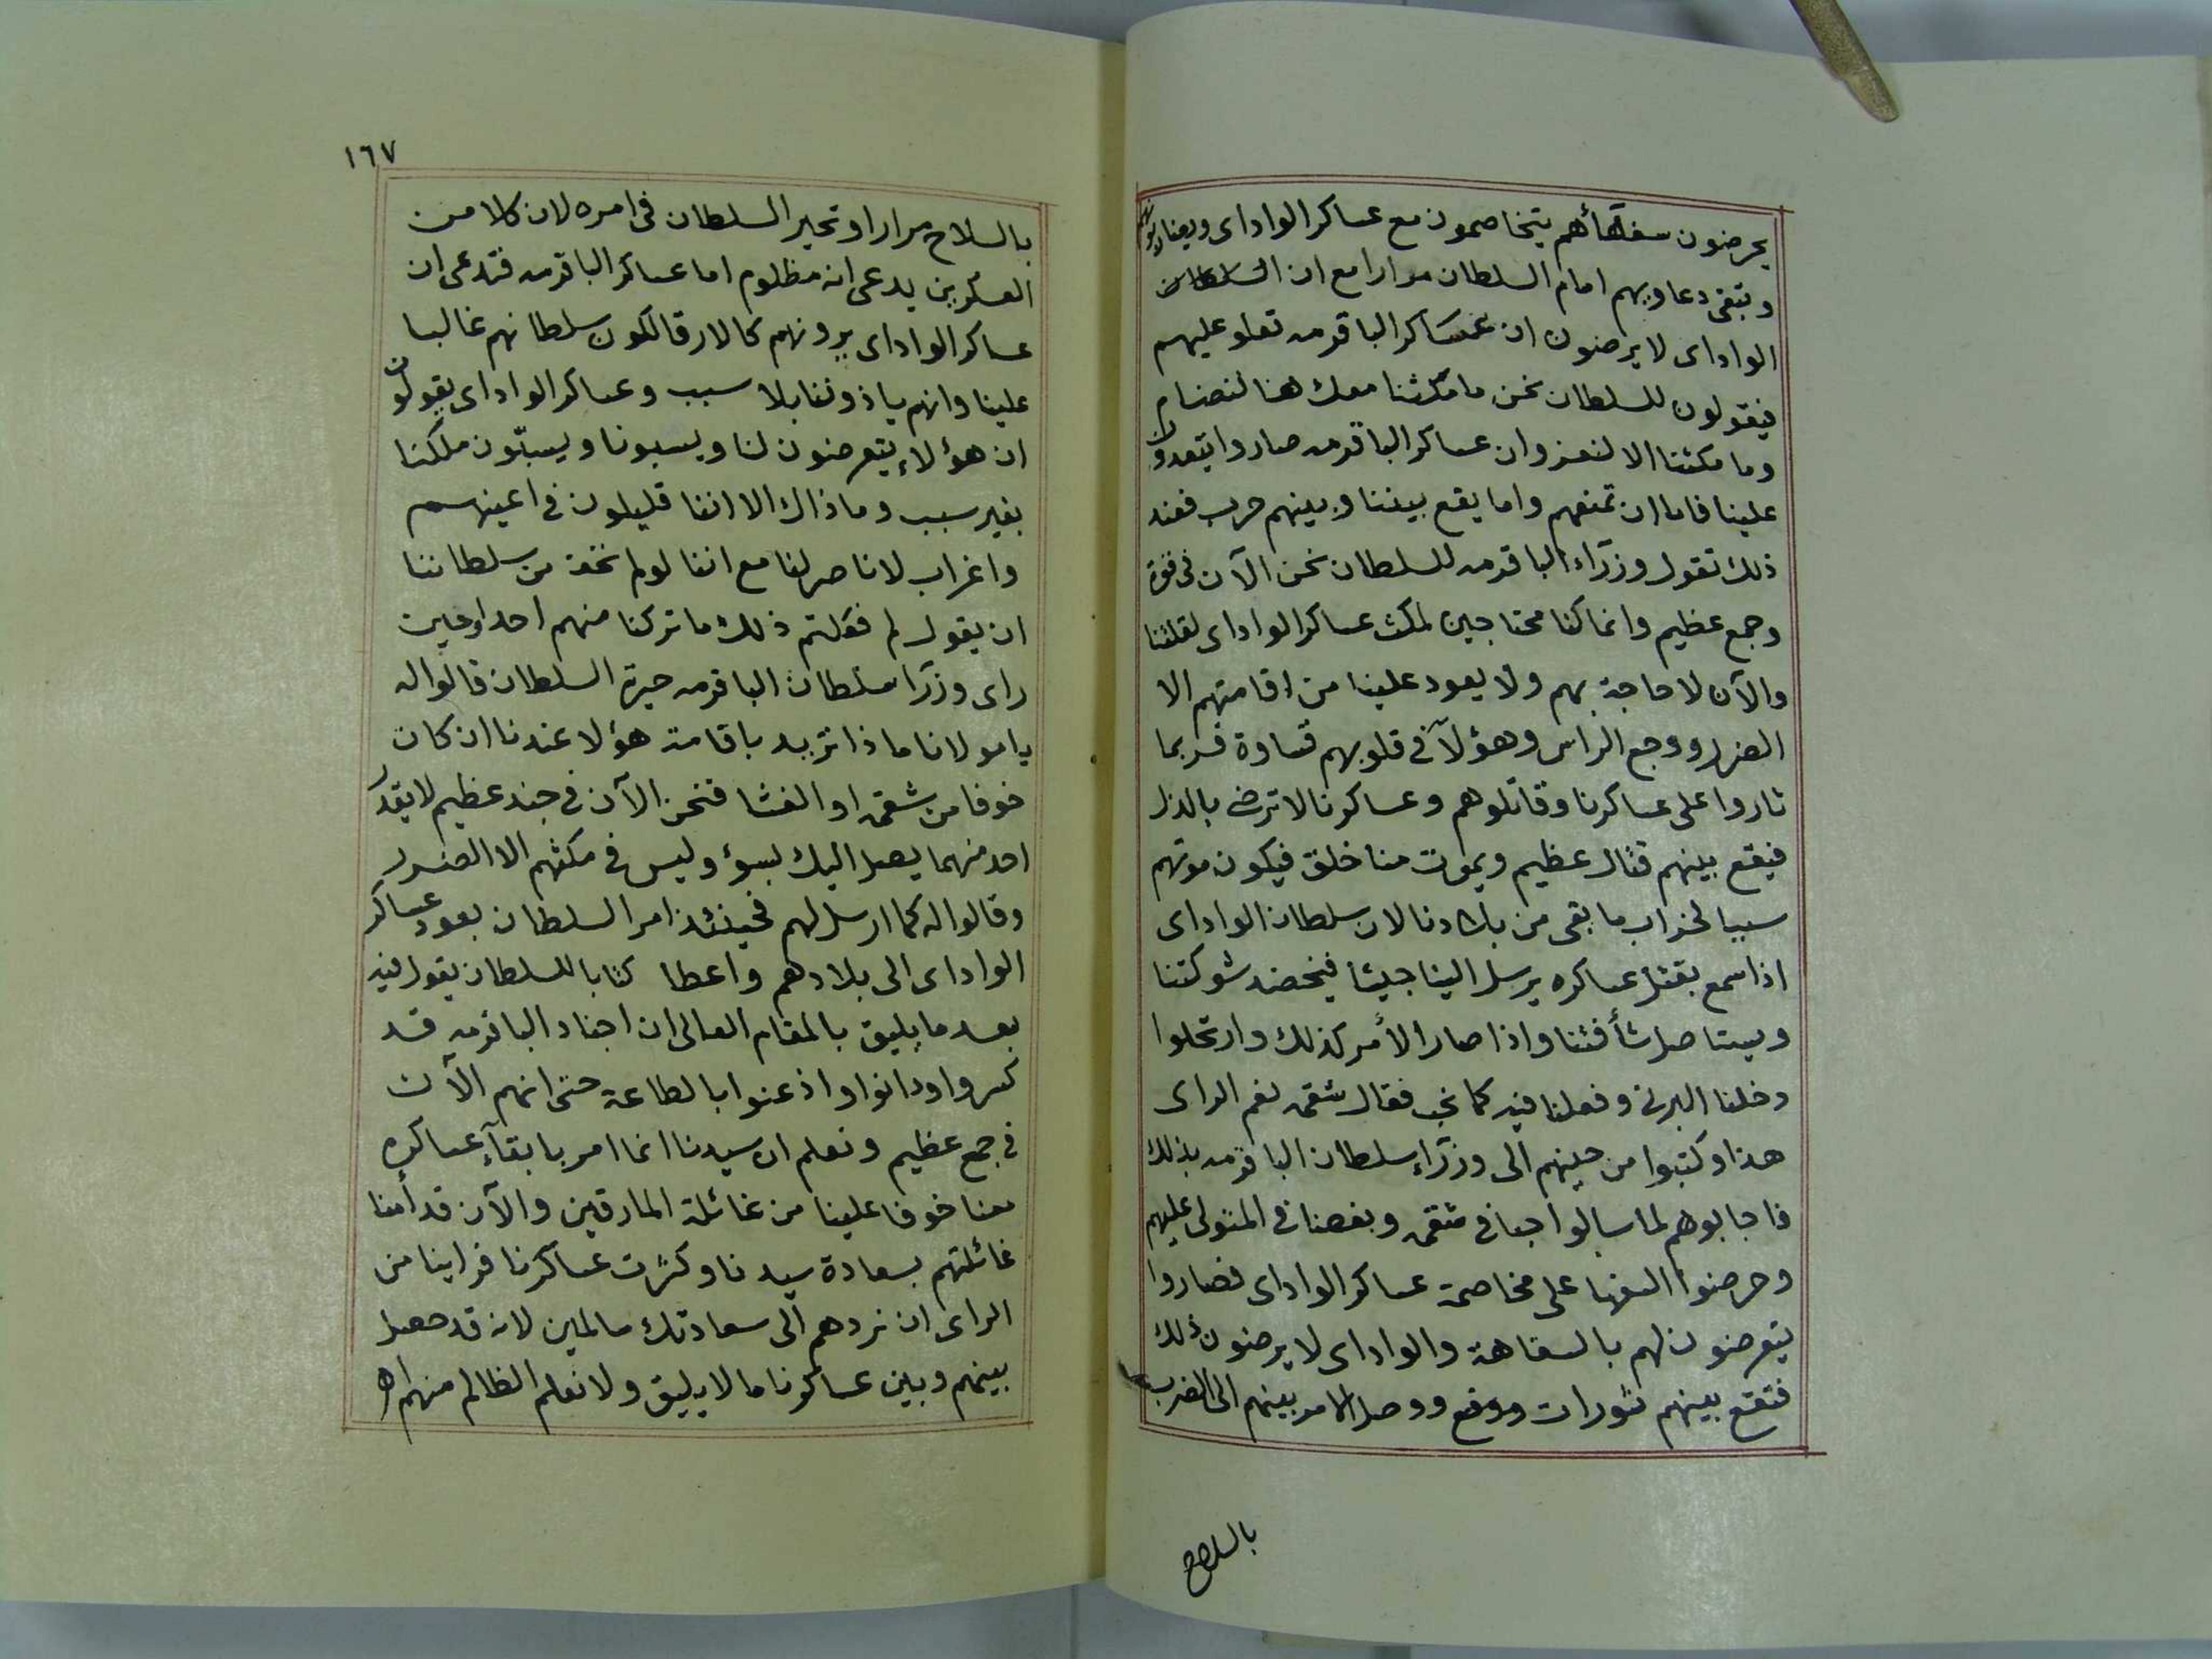 يحرضون سفهآئهم يتخاصمون مع عساكر الواداى ويضاربونهم
وتبقى دعاويهم امام السلطان مرارا مع ان السلطان
الواداى لا يرضون ان عساكر الباقرمه تعلو عليهم
فيقولون للسلطان نحن ما مكثنا معك هنا لنضام
وما مكثنا الا لنعز وان عساكر الباقرمه صاروا يتعدون
علينا فاما ان تمنعهم واما يقع بيننا وبينهم حرب فعند
ذلك تقول وزرآء الباقرمه للسلطان نحن الآن فى قوة
وجمع عظيم وانما كنا محتاجين لمكث عساكر الواداى لقلتنا
والآن لا حاجة بهم ولا يعود علينا من اقامتهم الا
الضرر ووجع الراس وهؤلآ فى قلوبهم قساوة فربما
ثاروا على عساكرنا وقاتلوهم وعساكرنا لا ترضى بالذل
فيقع بينهم قتال عظيم ويموت منا خلق فيكون موتهم
سببا لخراب ما بقى من بلادنا لان سلطان الواداى
اذا سمع بقتل عساكره يرسل الينا جيشا فيخضد شوكتنا
ويستاصل شأفتنا واذا صار الأمر كذلك وارتحلوا
دخلنا البرنى وفعلنا فيه كما نحب فقال شقمه نعم الراى
هذا وكتبوا من حينهم الى وزرآء سلطان الباقرمه بذلك
فاجابوهم لما سالوا حبا فى شقمه وبغضا فى المتولى عليهم
وحرضوا السفها على مخاصمة عساكر الواداى فصاروا
يتعرضون لهم بالسفاهة والواداى لا يرضون ذلك
فتقع بينهم ثورات ووقع ووصل الامر بينهم الى الضرب
بالسلاح
١٦٧
بالسلاح مرارا وتحير السلطان فى امره لان كلا من
العسكرين يدعى انه مظلوم اما عساكر الباقرمه فتدعى ان
عساكر الواداى يرونهم كالارقا لكون سلطانهم غالبا
علينا وانهم ياذوننا بلا سبب وعساكر الواداى يقولون
ان هؤلاء يتعرضون لنا ويسبونا ويسبّون ملكنا
بغير سبب وما ذاك الا اننا قليلون فى اعينهم
واغراب لا ناصر لنا مع اننا لو لم نخف من سلطاننا
ان يقول لم فعلتم ذلك ما تركنا منهم احدا وحين
راى وزرآ سلطان الباقرمه حيرة السلطان قالوا له
يا مولانا ماذا تريد باقامة هؤلا عندنا ان كان
خوفا من شقمه او الفشا فنحن الآن فى جند عظيم لا يقدر
احد منهما يصل اليك بسوء وليس فى مكثهم الا الضرر
وقالوا له كما ارسل لهم فحينئذ امر السلطان بعود عساكر
الواداى الى بلادهم واعطا كتابا للسلطان يقول فيه
بعد ما يليق بالمقام العالى ان اجناد الباقرمه قد
كسروا ودانوا واذعنوا بالطاعة حتى انهم الآن
فى جمع عظيم ونعلم ان سيدنا انما امر بابقآء عساكره
معنا خوفا علينا من غائلة المارقين والآن قد أمنا
غائلتهم بسعادة سيدنا وكثرت عساكرنا فراينا من
الراى ان نردهم الى سعادتك سالمين لانه قد حصل
بينهم وبين عساكرنا ما لا يليق ولا نعلم الظالم منهم اه